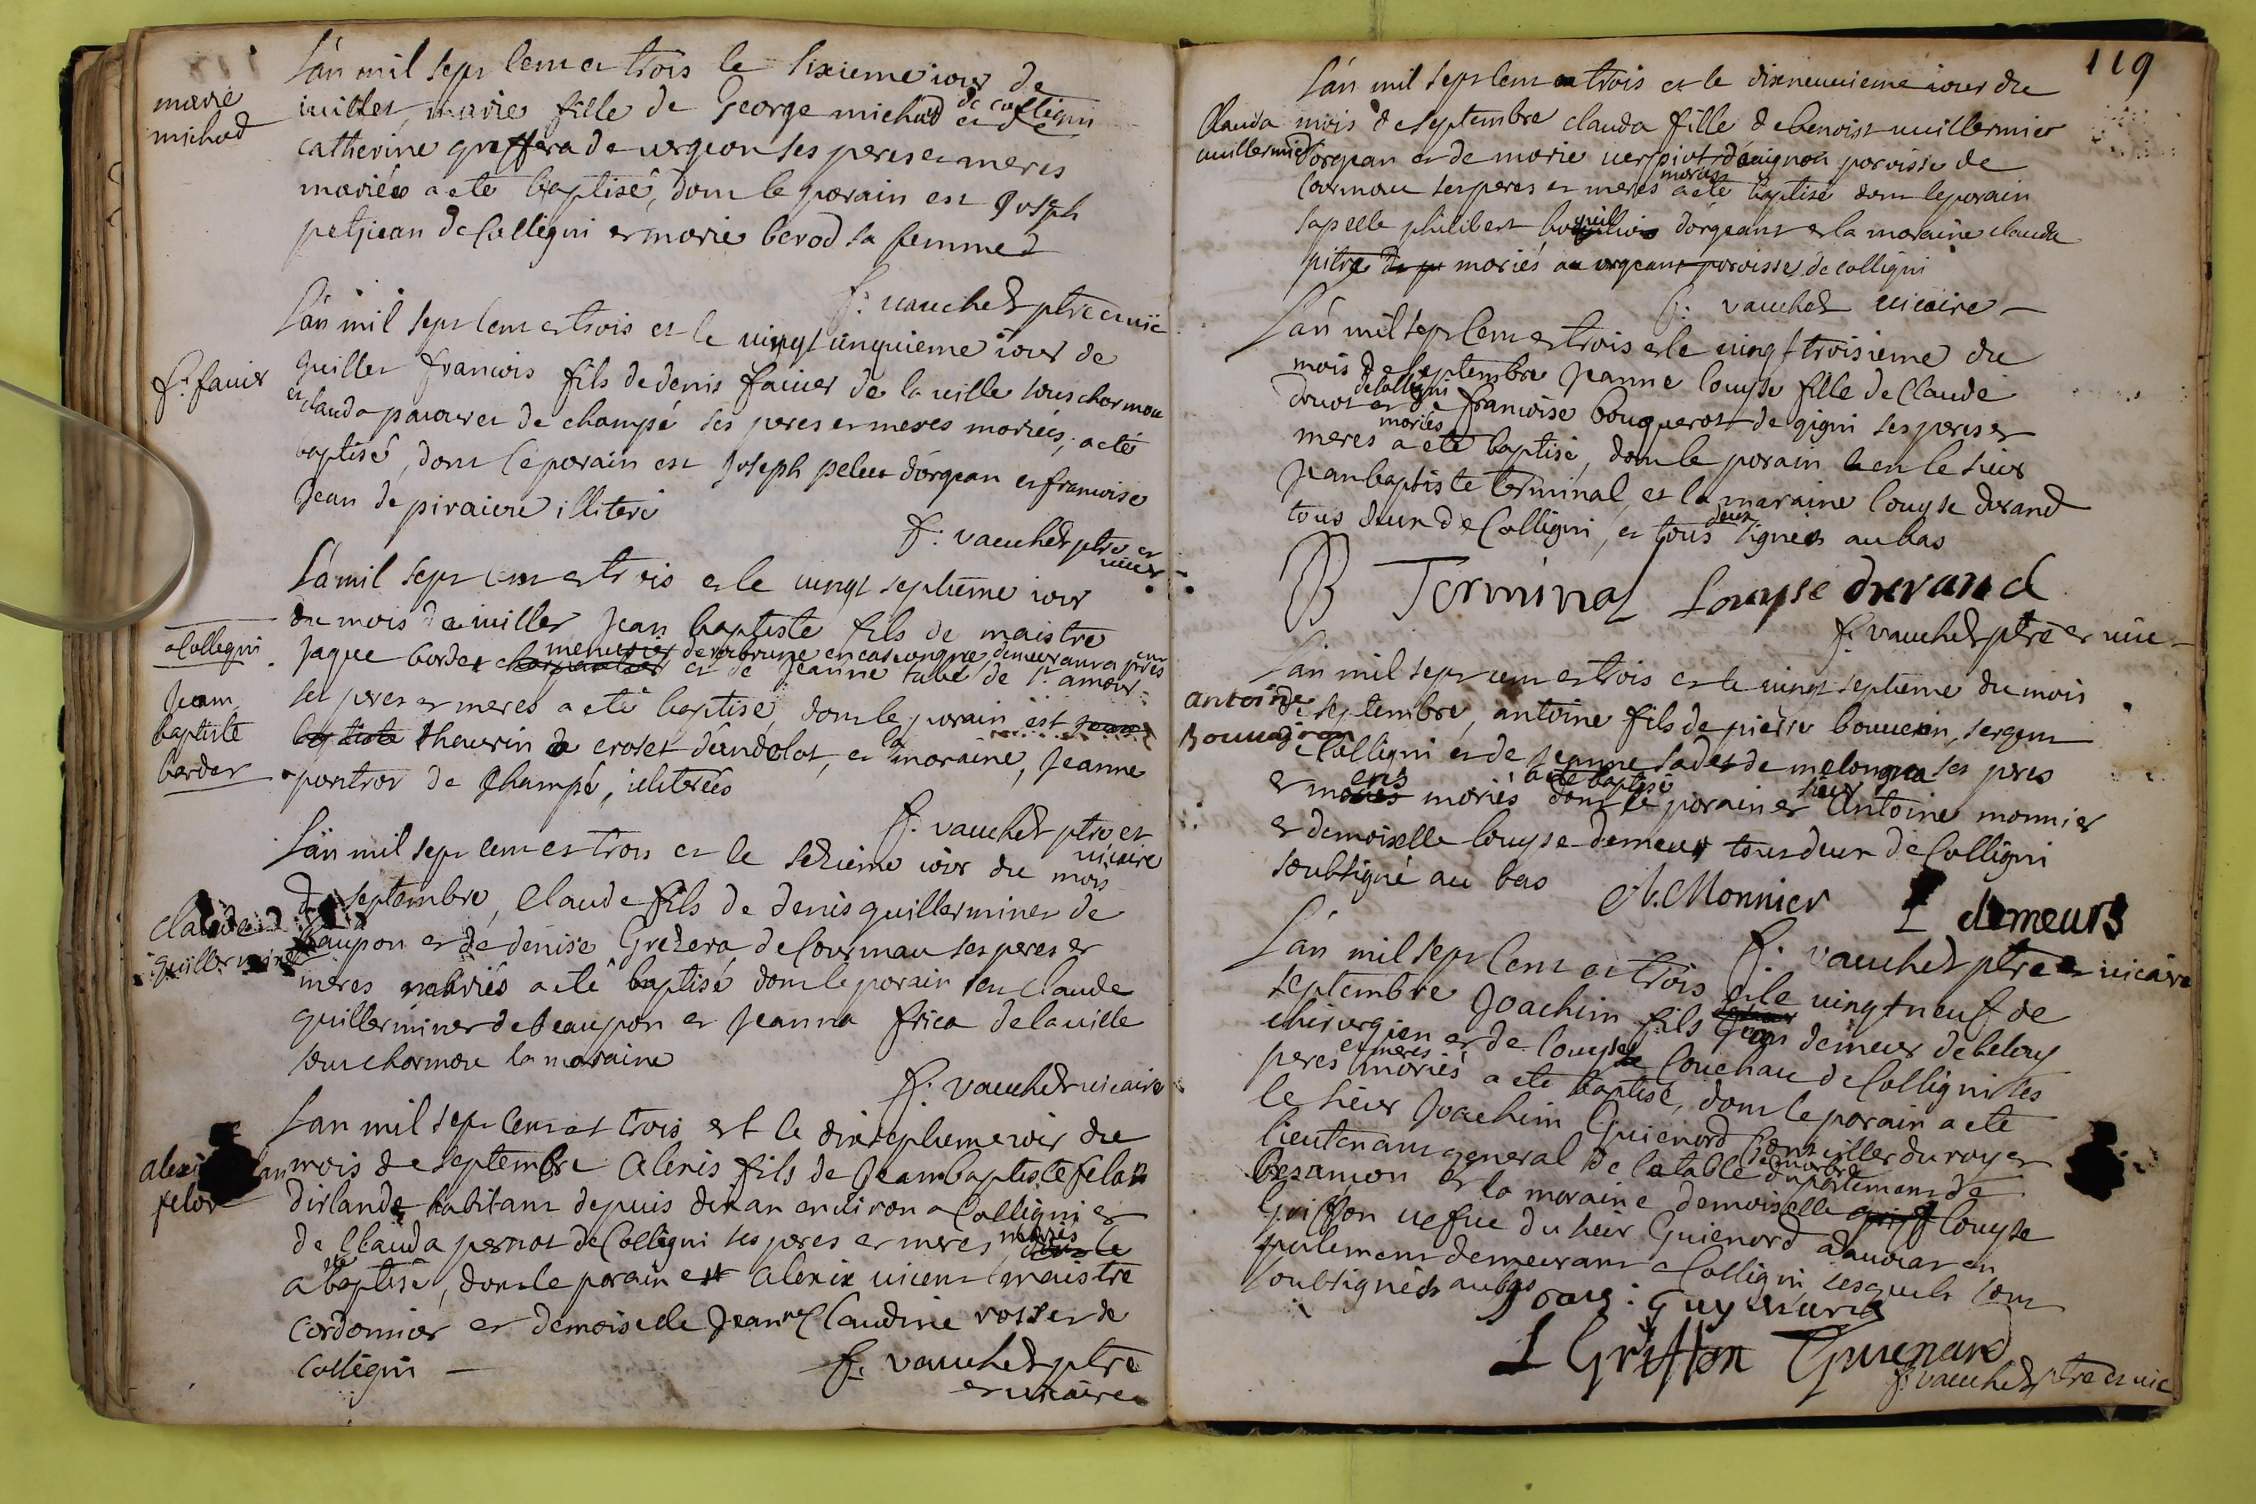 marie
michod
L'an mil sept cent et trois le sixieme iour de
iuillet, marie fille de George michod de colligni et
catherine graffera de vergeon ses peres et meres
mariés a ete baptisé, dont le parain est Joseph
petjean de Colligni et marie berod sa femme
f: vauchez ptre et vic
f. favier
L'an mil sept cent et trois et le vingt cinquieme iour de
Juillet francois fils de denis favier de la ville sous charmou
et clauda pauvret de champé ses peres et meres mariés, a eté
baptisé, dont le parain est Joseph pelut d'orgean et francoise
Jean de piraiere illiteré
f: vauchez ptre et
vicaire
a Colligni
Jean
baptiste
border
L'a mil sept cent et trois et le vingt septieme iour
du mois de iuillet Jean baptiste fils de maistre
Jaque border charpantier menusier de rabrune en cascongne, demeurant a pnt
et de Jeanne tabé de st amour
ses peres et meres a eté baptisé, dont le parain est Jean
baptiste thaurin de croset d'andelot, et la maraine, Jeanne
pontrot de Champé, illiterées
f: vauchez ptre et
vicaire
L'an mil sept cent et trois et le sezieme iour du mois
Claude
guillerminet
de septembre, Claude fils de denis guilleminer de
beaupon et de denise Gredera de Courmau ses peres et
meres mariés a eté baptisé dont le parain feu Claude
guillerminer de beaupon et Jeanna frica de la ville
sou charmou la maraine
f: vauchez vicaire
L'an mil sept cent et trois et le dixseptieme ioir du
alexi
felan
mois de septembre Alexis fils de Jean baptiste felan
d'irlande habitant depuis dix an environ a Colligni et
de Clauda pernot de Colligni ses peres et meres mariés dont le
a ete baptisé, dont le parain est Alexix vicent maistre
Cordonnier et demoiselle Jeanne Claudine rosset de
Colligni
f: vauchez ptre
et vicaire
119
L'an mil sept cent et trois et le dixneuvieme iour du
Clauda
vuillermier
mois de septembre clauda fille de benoist vuillermier
d'orgean et de marie verpiot d'avignon paroisse de
Cormau ses peres et meres mariés a eté baptisé dont le parain
s'apelle philibert d'orgeans et la maraine clauda
pitre de mariés au orgeant paroisse de colligni
f: vauchez vicaire
L'an mil sept cent et trois et le vingt troisieme du
mois de septembre Jeanne louyse fille de Claude
drvot de colligni et de francoise bouquerot de gigni ses peres et
meres mariés a eté baptisé, dont le parain a eu le sieur
Jean baptiste terminal, et la maraine louyse durand
tous deux de Colligni, et tous deux signes au bas
JB Terminal Louyse durand
f: vauchez ptre et vic
L'an mil sept cent et trois et le vingt septieme du mois
antoine
bouveiron
de septembre, antoine fils de pierre bouveron, sergent
de Colligni et de Jeanne sadet de melongea ses peres
et meres mariés a ete baptisé dont le parain est sieur Antoine monnier
et demoiselle louyse demeur tous deux de Colligni
soubsigné au bas
A. Monnier L demeurs
f: vauchez ptre et vicaire
L'an mil sept cent et trois et le vingt neuf de
septembre Joachim fils Jean demeur de beloux
chirurgien et de louyse Couchau de Colligni ses
peres et meres mariés a ete baptisé, dont le parain a eté
le sieur Joachim Guienord Conseiller du roy et
lieutenant general de la table de marbre du partement de
besancon et la maraine demoiselle griff louyse
Griffon vefue du sieur Guienord advocat en
parlement demeurant a Colligni, lesquels sont
soubsignés au bas
Joac: Guyenard
L Griffon Guienard
f: vauchez ptre et vic